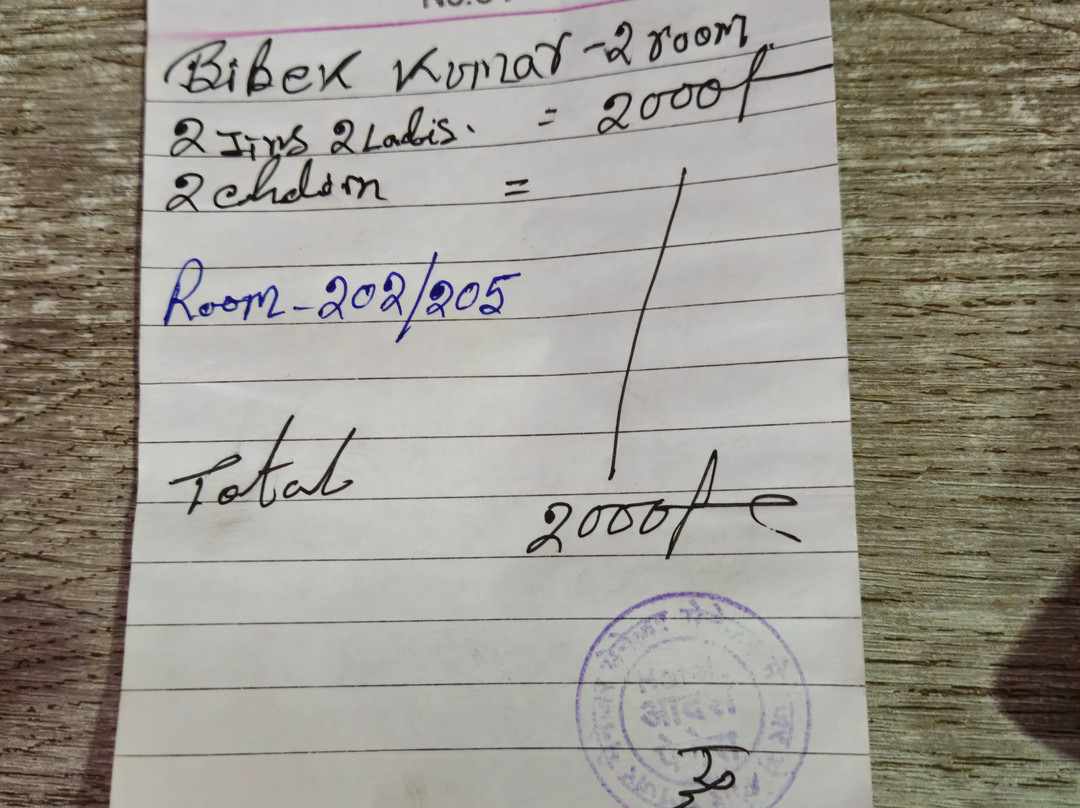 Bibek Kumar - 2 room
2 Jins 2 Ladis. = 2000/-
2 chdirn =
Room - 202/205
Total
2000/-
आदर्श